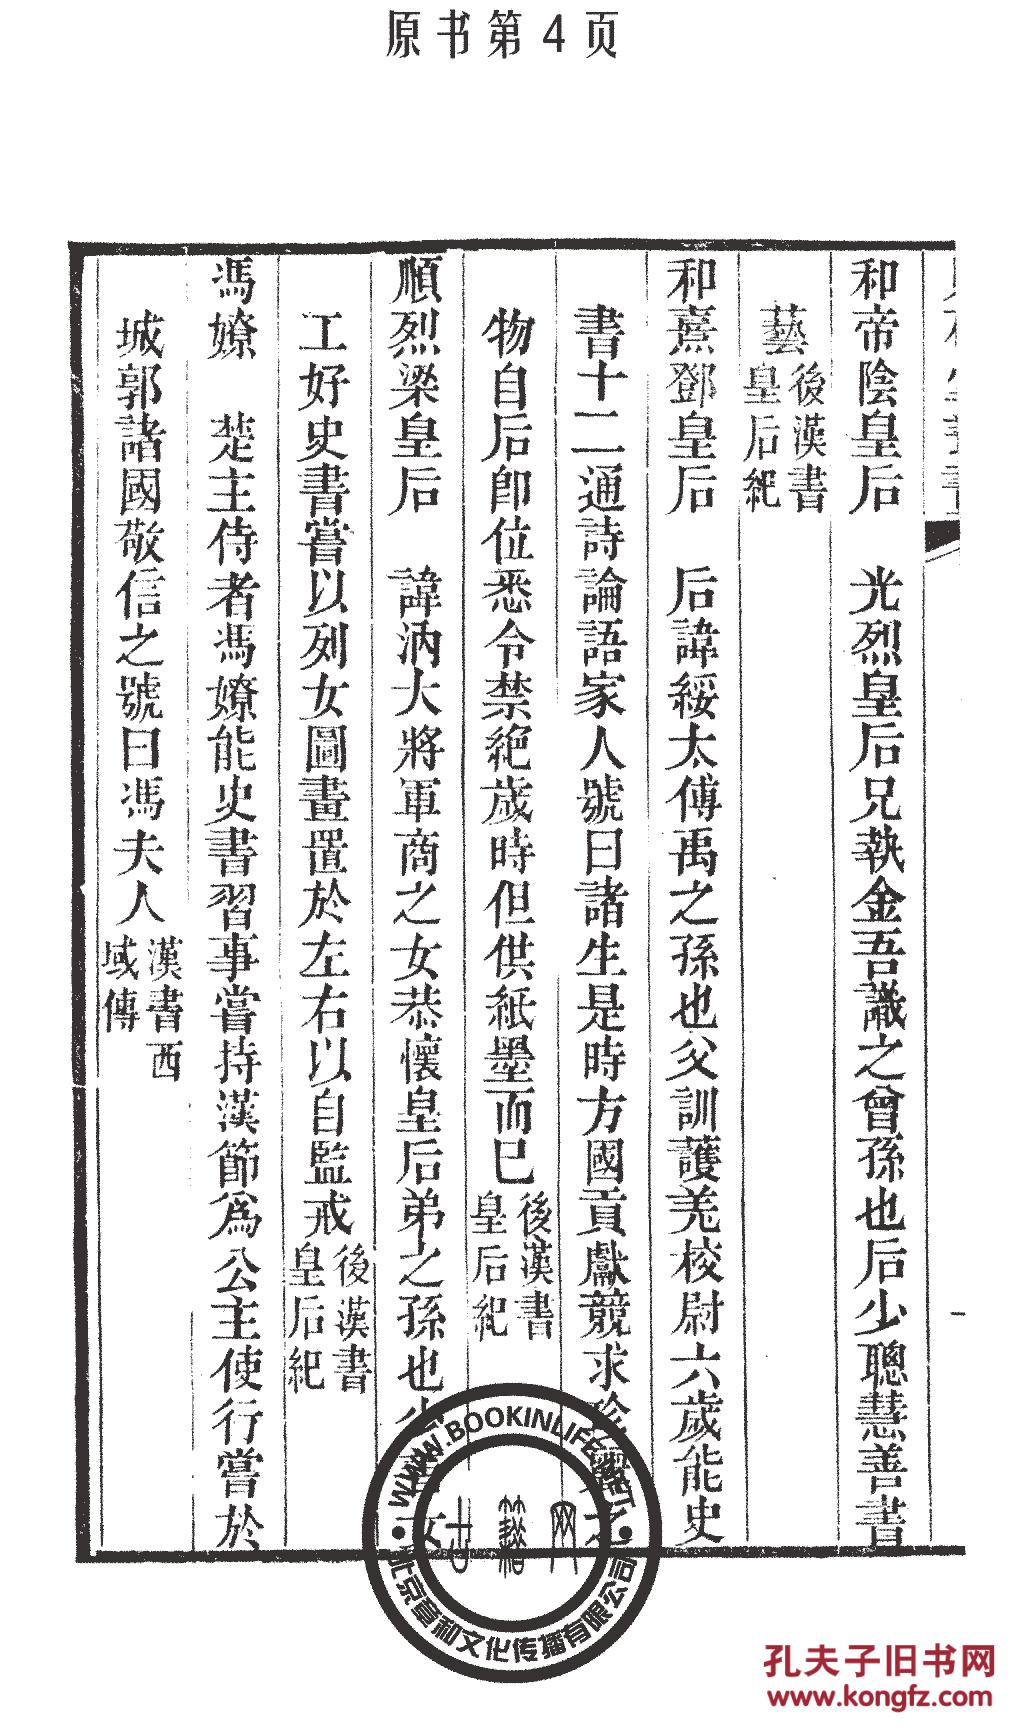 原书第4页
和帝陰皇后　光烈皇后兄執金吾識之曾孫也后少聰慧善書
藝後漢書皇后紀
和熹鄧皇后　后諱綏太傅禹之孫也父訓護羌校尉六歲能史
書十二通詩論語家人號曰諸生是時方國貢獻競求
物自后卽位悉令禁絶歲時但供紙墨而已後漢書皇后紀
順烈梁皇后　諱妠大將軍商之女恭懷皇后弟之孫也少
工好史書嘗以列女圖畫置於左右以自監戒後漢書皇后紀
馮嫽　楚主侍者馮嫽能史書習事嘗持漢節爲公主使行嘗於
城郭諸國敬信之號曰馮夫人漢書西域傳
WWW.BOOKINLIFE.NET
古籍网
北京章和文化传播有限公司
孔夫子旧书网
www.kongfz.com